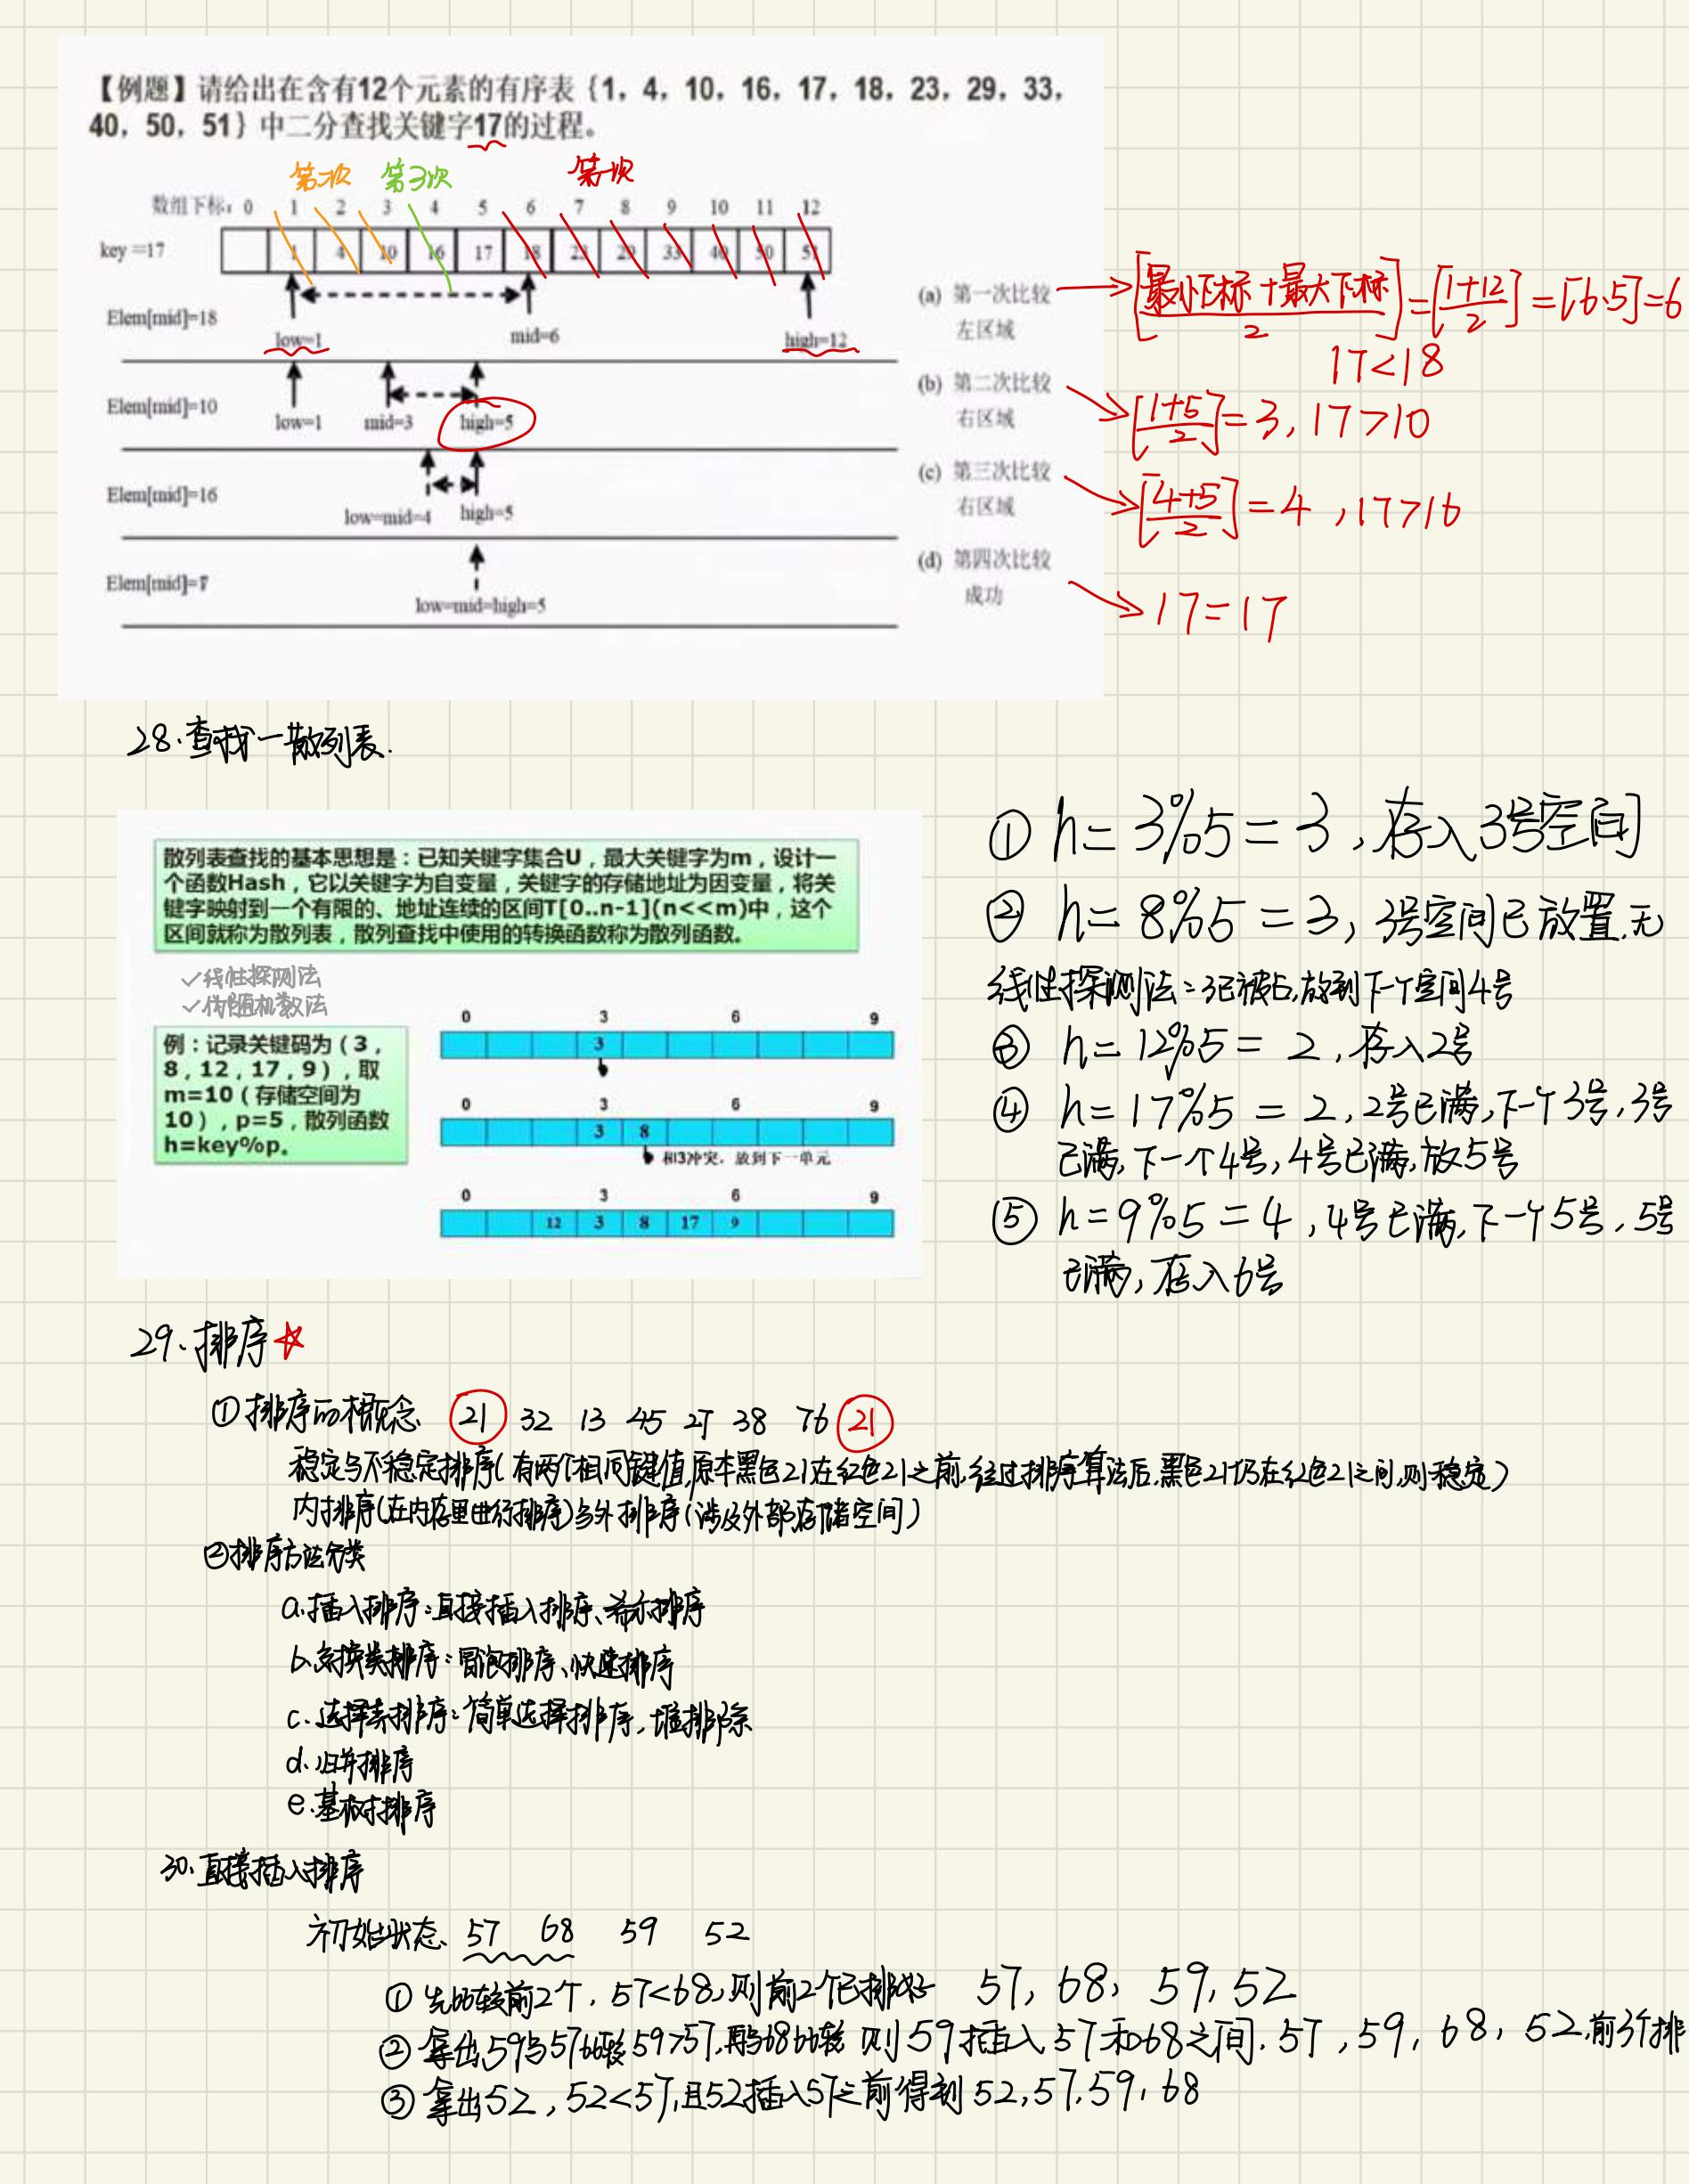 【例题】请给出在含有12个元素的有序表{1，4，10，16，17，18，23，29，33，
40，50，51}中二分查找关键字17的过程。
第二次 第3次 第一次
数组下标：0 1 2 3 4 5 6 7 8 9 10 11 12
key =17 1 4 10 16 17 18 23 29 33 40 50 51
Elem[mid]=18 low=1 mid=6 high=12
(a) 第一次比较
左区域
[最小下标+最大下标/2]=[1+12/2]=[6.5]=6
17<18
Elem[mid]=10 low=1 mid=3 high=5
(b) 第二次比较
右区域
[1+5/2]=3, 17>10
Elem[mid]=16 low=mid=4 high=5
(c) 第三次比较
右区域
[4+5/2]=4, 17>16
Elem[mid]=17 low=mid=high=5
(d) 第四次比较
成功
17=17
28.查找—散列表.
散列表查找的基本思想是：已知关键字集合U，最大关键字为m，设计一
个函数Hash，它以关键字为自变量，关键字的存储地址为因变量，将关
键字映射到一个有限的、地址连续的区间T[0..n-1](n<<m)中，这个
区间就称为散列表，散列查找中使用的转换函数称为散列函数。
✓线性探测法
✓伪随机数法
例：记录关键码为（3，
8，12，17，9），取
m=10（存储空间为
10），p=5，散列函数
h=key%p。
0 3 6 9
3
0 3 6 9
3 8
和3冲突，放到下一单元
0 3 6 9
12 3 8 17 9
① h=3%5=3,存入3号空间
② h=8%5=3, 3号空间已放置,无
线性探测法:3已被占,放到下一个空间4号
③ h=12%5=2,存入2号
④ h=17%5=2, 2号已满,下一个3号,3号
已满,下一个4号,4号已满,放5号
⑤ h=9%5=4, 4号已满,下一个5号, 5号
已满,存入6号
29.排序☆
①排序的概念 21 32 13 45 27 38 76 21
稳定与不稳定排序(有两个相同键值,原本黑色21在红色21之前,经过排序算法后,黑色21仍在红色21之间,则稳定)
内排序(在内存里进行排序)与外排序(涉及外部存储空间)
②排序方法分类
a.插入排序:直接插入排序、希尔排序
b.交换类排序:冒泡排序、快速排序
c.选择类排序:简单选择排序,堆排除
d.归并排序
e.基树排序
30.直接插入排序
初始状态 57 68 59 52
①先比较前2个,57<68,则前2个已排好 57, 68, 59, 52
②拿出59与57比较59>57,再与68比较 则59插入57和68之间. 57, 59, 68, 52,前3个排
③拿出52, 52<57,且52插入57之前得到52,57,59,68